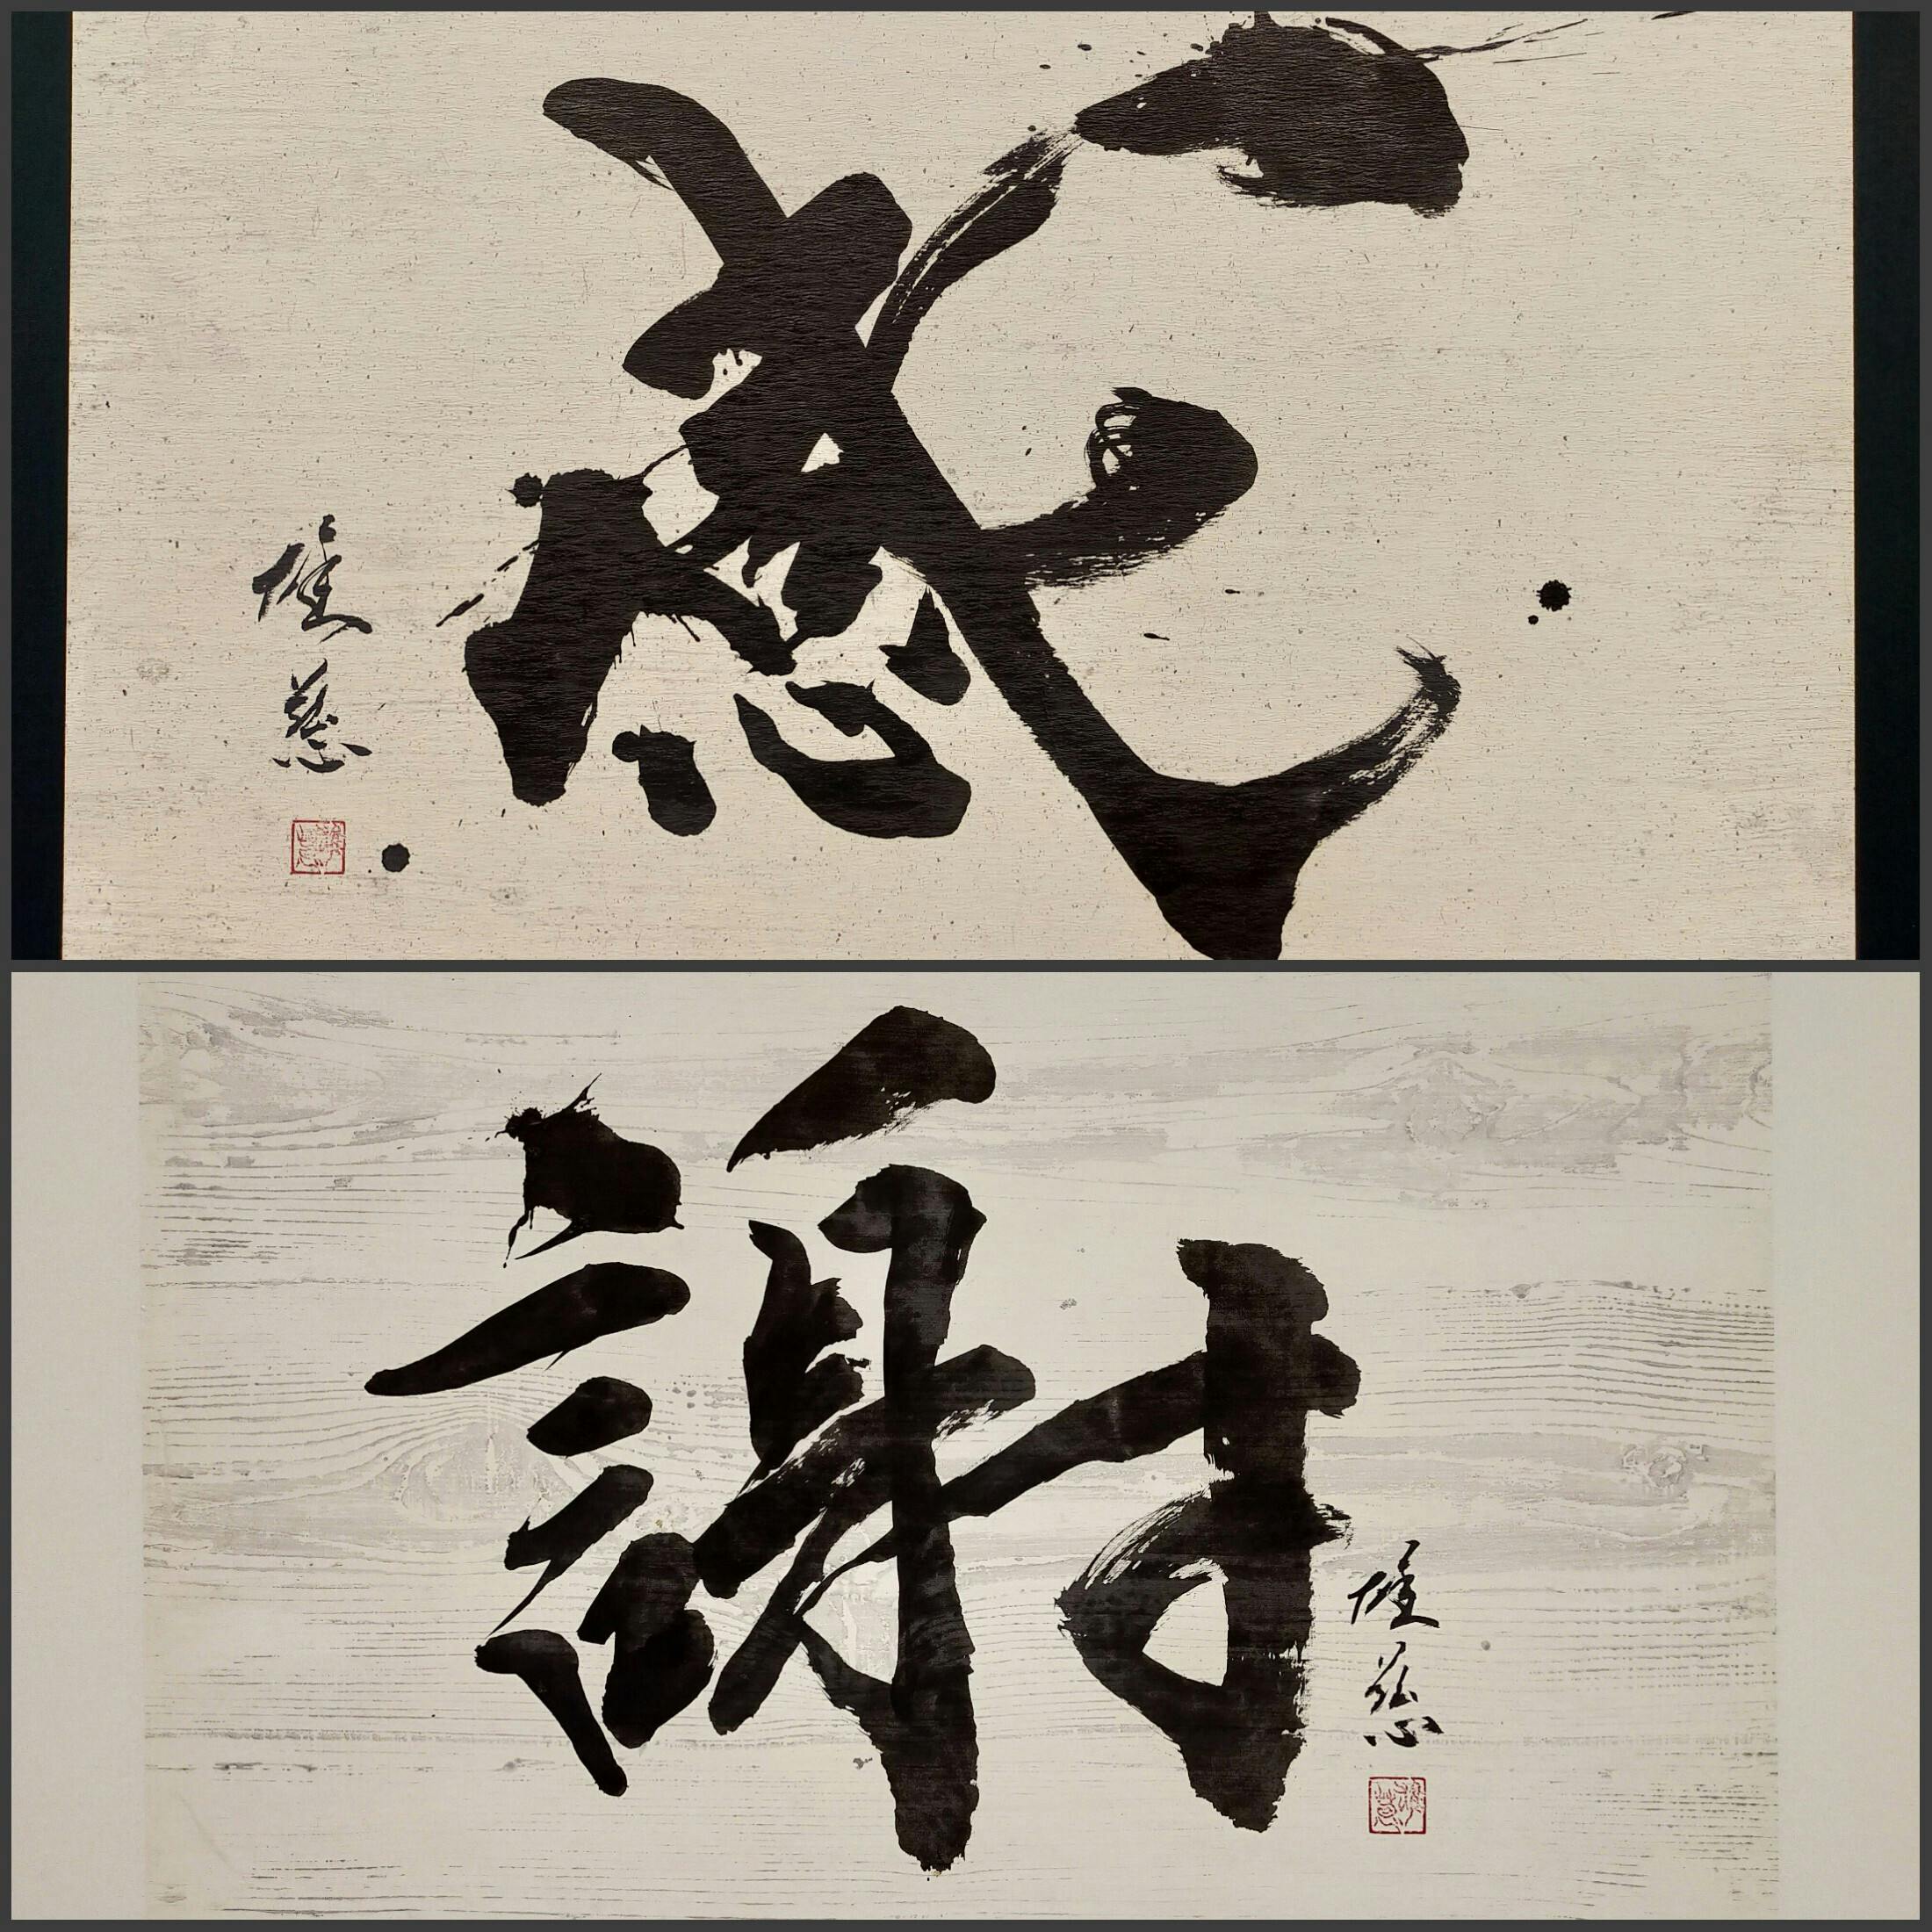 感
雄慈
謝
雄慈